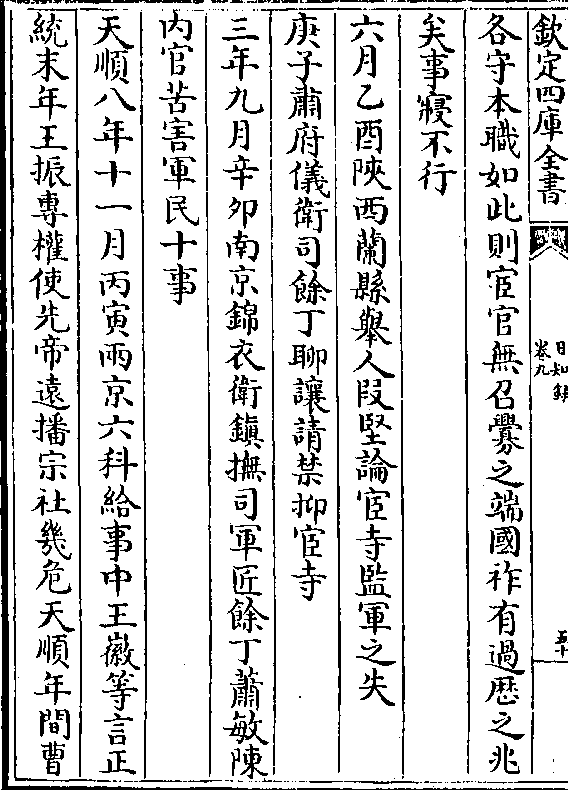 欽定四庫全書
日知録
卷九
五十
各守本職如此則宦官無召釁之端國祚有過歴之兆
矣事寢不行
六月乙酉陜西蘭縣舉人段堅論宦寺監軍之失
庚子肅府儀衛司餘丁聊讓請禁抑宦寺
三年九月辛夘南京錦衣衛鎮撫司軍匠餘丁蕭敏陳
内官苦害軍民十事
天順八年十一月丙寅兩京六科給事中王徽等言正
統末年王振專權使先帝逺播宗社幾危天順年間曹